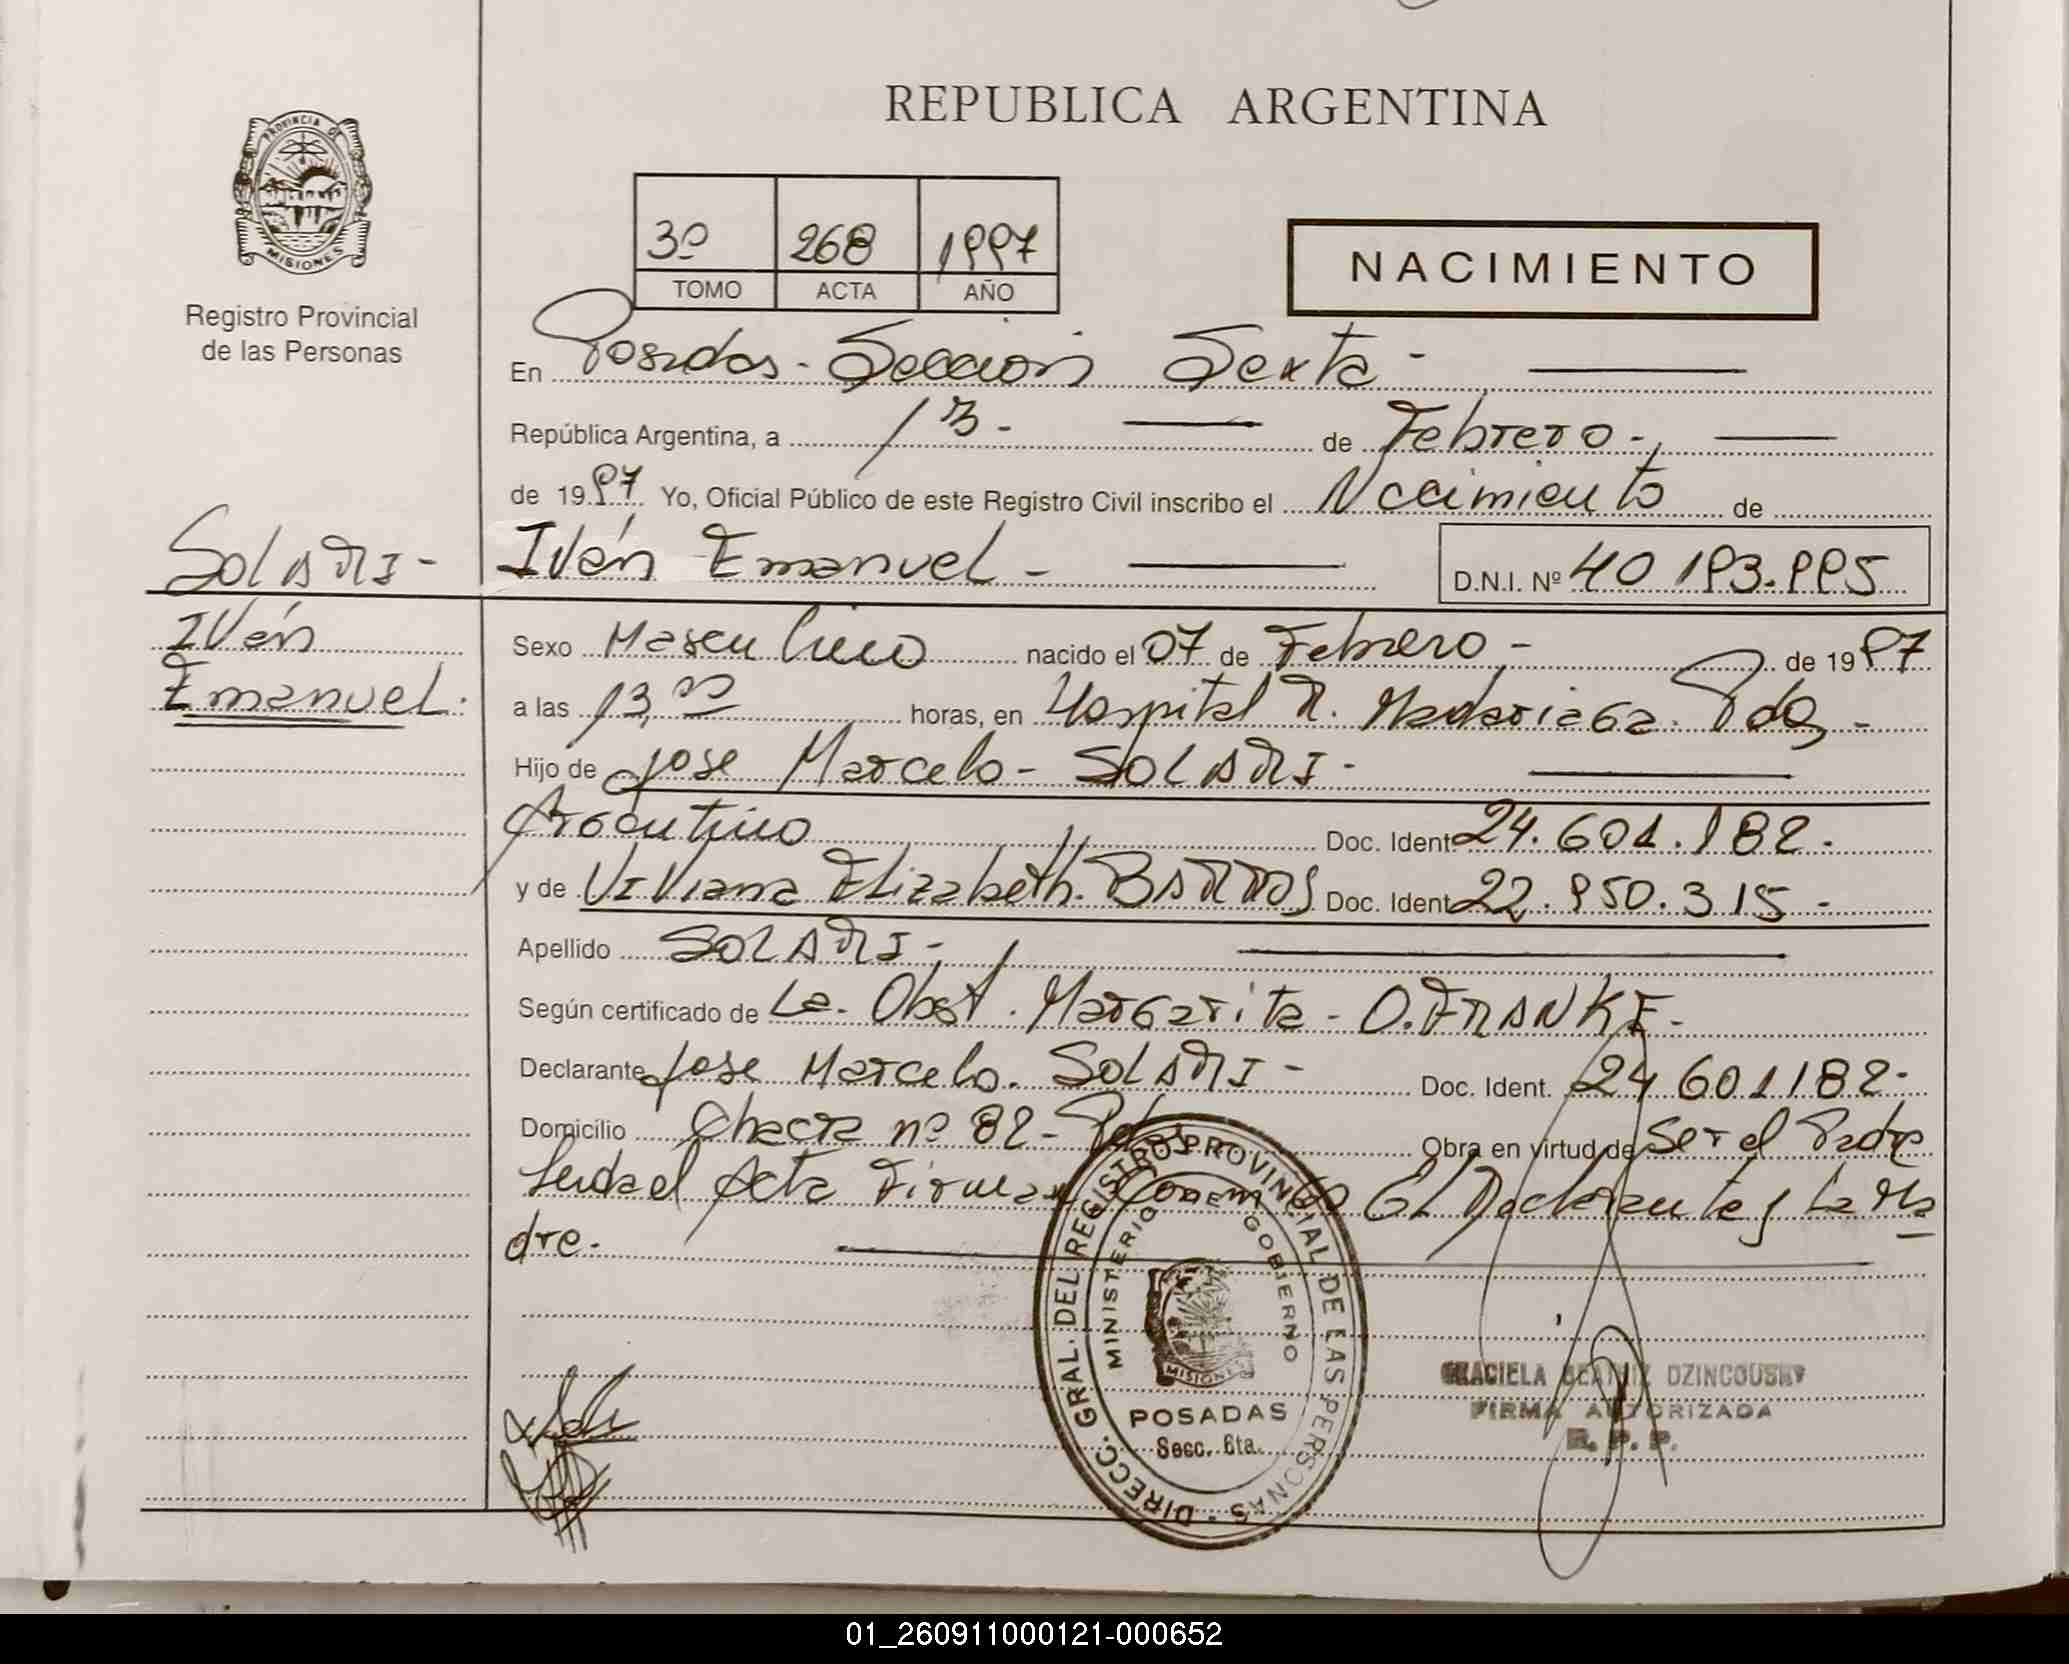 REPUBLICA ARGENTINA
PROVINCIA DE
MISIONES
Registro Provincial
de las Personas
3º 268 1997
TOMO ACTA AÑO
NACIMIENTO
En Posadas - Seccion Sexta -
República Argentina, a 13 - de Febrero -
de 1997 Yo, Oficial Público de este Registro Civil inscribo el Nacimiento de
SOLARI - Iván Emanuel - D.N.I. Nº 40 193.995
Iván
Emanuel.
Sexo Masculino nacido el 07 de Febrero - de 1997
a las 13,00 horas, en Hospital R. Madariaga. Pdas -
Hijo de Jose Marcelo - SOLARI -
Argentino Doc. Ident. 24.601.182.
y de Viviana Elizabeth. BARROS Doc. Ident. 22.950.315 -
Apellido SOLARI -
Según certificado de La. Obst. Margarita - O. FRANKE -
Declarante Jose Marcelo. SOLARI - Doc. Ident. 24 601182-
Domicilio Chacra nº 82 - Pdas Obra en virtud de Ser el Padre
Leida el Acta Firman Conmigo El Declarante y La Ma
dre.
DIRECC. GRAL. DEL REGISTRO PROVINCIAL DE LAS PERSONAS
MINISTERIO DE GOBIERNO
MISIONES
POSADAS
Secc. 6ta.
GRACIELA BEATRIZ DZINCOUSKY
FIRMA AUTORIZADA
R. P. P.
01_260911000121-000652